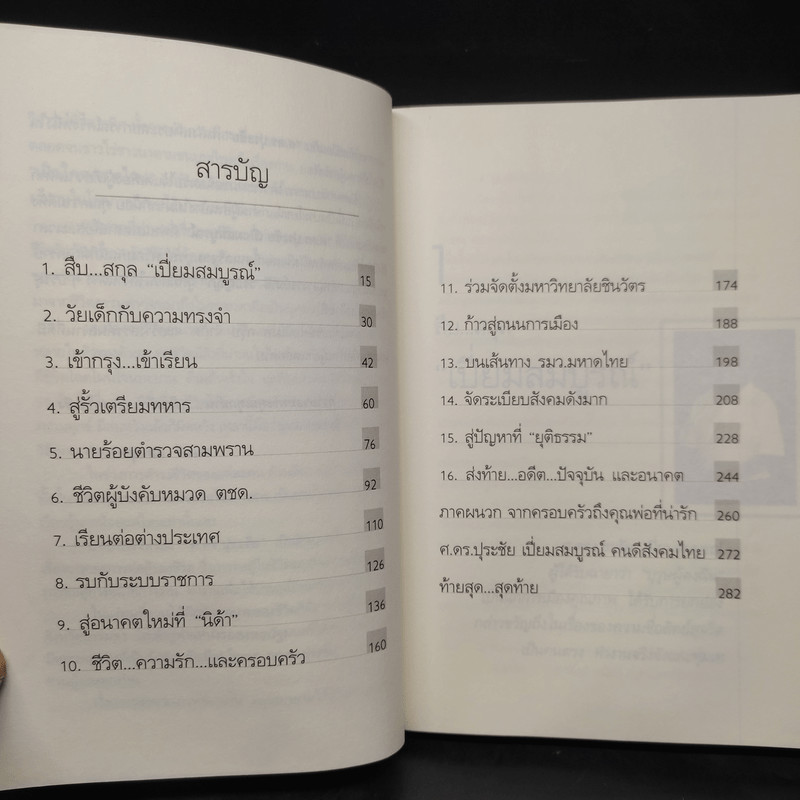 สารบัญ
1. สืบ...สกุล “เปี่ยมสมบูรณ์” 15
2. วัยเด็กกับความทรงจำ 30
3. เข้ากรุง...เข้าเรียน 42
4. สู่รั้วเตรียมทหาร 60
5. นายร้อยตำรวจสามพราน 76
6. ชีวิตผู้บังคับหมวด ตชด. 92
7. เรียนต่อต่างประเทศ 110
8. รบกับระบบราชการ 126
9. สู่อนาคตใหม่ที่ “นิด้า” 136
10. ชีวิต...ความรัก...และครอบครัว 160
11. ร่วมจัดตั้งมหาวิทยาลัยชินวัตร 174
12. ก้าวสู่ถนนการเมือง 188
13. บนเส้นทาง รมว.มหาดไทย 198
14. จัดระเบียบสังคมดังมาก 208
15. สู่ปัญหาที่ “ยุติธรรม” 228
16. ส่งท้าย...อดีต...ปัจจุบัน และอนาคต 244
ภาคผนวก จากครอบครัวถึงคุณพ่อที่น่ารัก 260
ศ.ดร.ปุระชัย เปี่ยมสมบูรณ์ คนดีสังคมไทย 272
ท้ายสุด...สุดท้าย 282